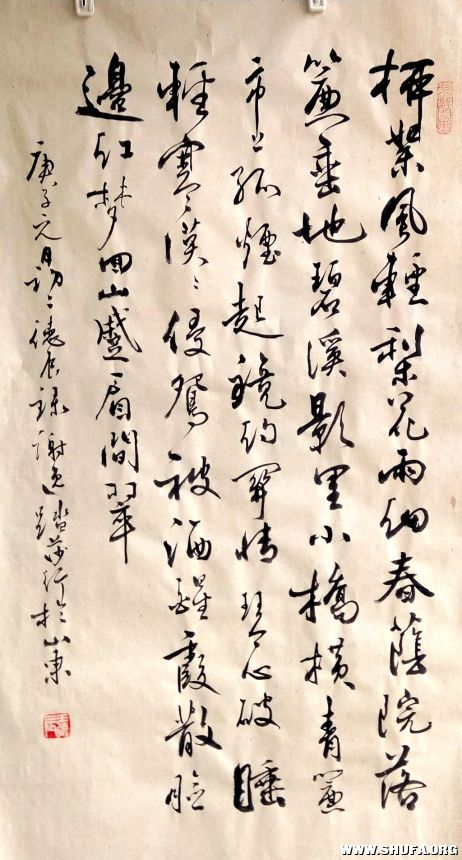 柳絮風輕梨花雨細春蔭院落
簾垂地碧溪影里小橋橫青簾
市上孤煙起鏡約関情琴心破睡
輕寒漠々侵鴛被酒醒霞散臉
邊紅夢回山蹙眉間翠
庚子元月初二德辰錄謝逸踏莎行於山東
WWW.SHUFA.ORG